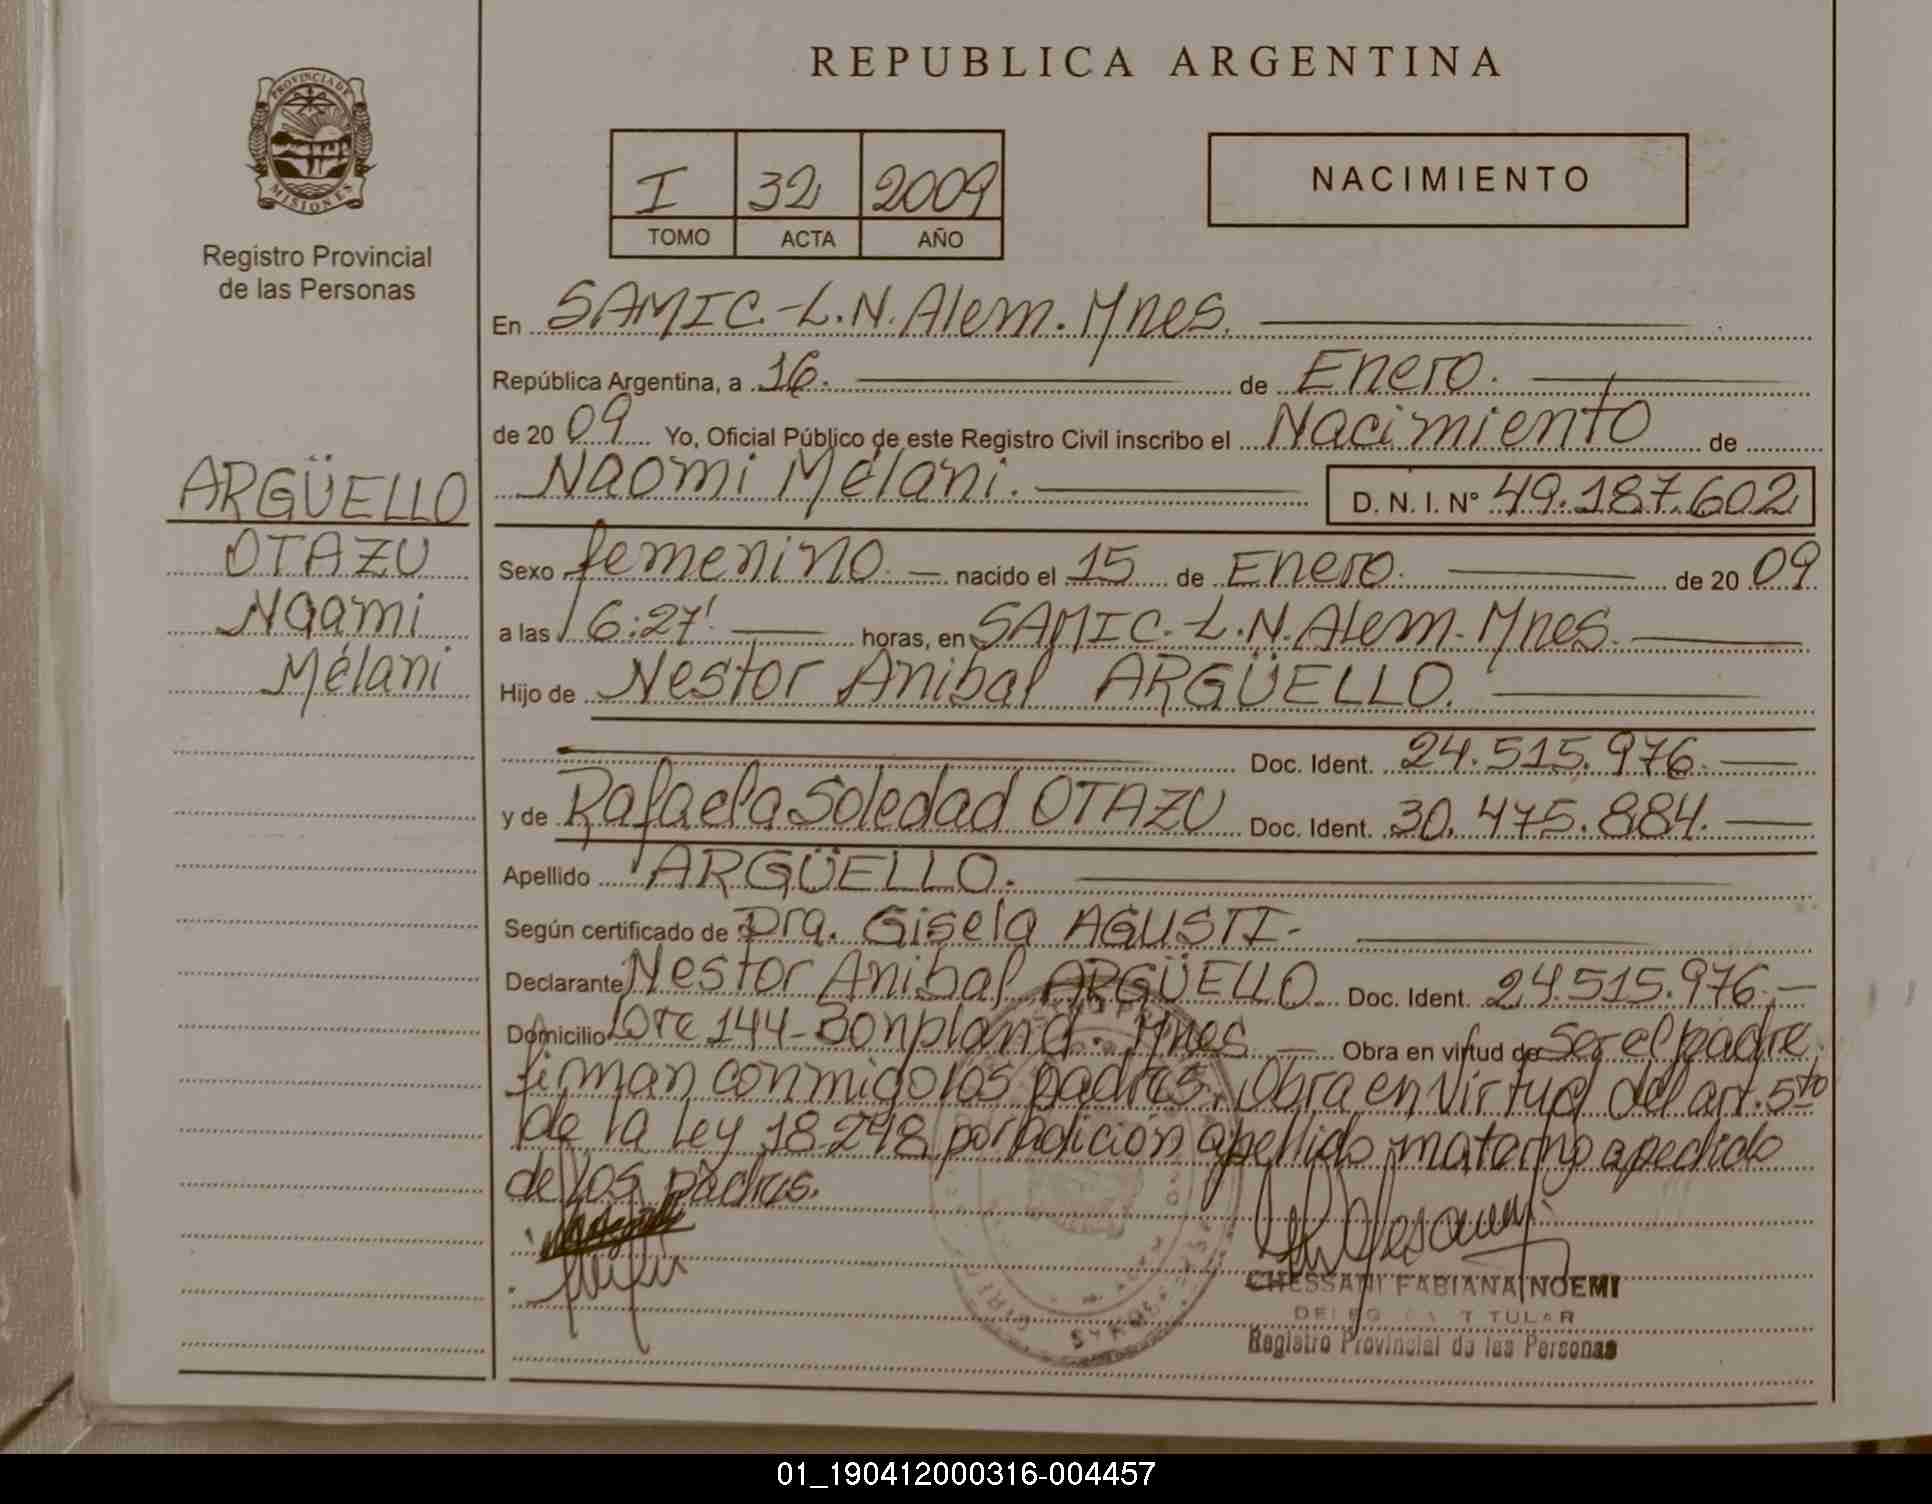 REPUBLICA ARGENTINA
PROVINCIA DE MISIONES
Registro Provincial
de las Personas
I 32 2009
TOMO ACTA AÑO
NACIMIENTO
En SAMIC.-L.N.Alem.Mnes.
República Argentina, a 16. de Enero.
de 2009 Yo, Oficial Público de este Registro Civil inscribo el Nacimiento de
Naomi Mélani. D. N. I. Nº 49.187.602
ARGÜELLO
OTAZU
Naomi
Mélani
Sexo femenino. nacido el 15 de Enero. de 2009
a las 16:27' horas, en SAMIC.-L.N.Alem.Mnes.
Hijo de Nestor Anibal ARGÜELLO.
Doc. Ident. 24.515.976.
y de Rafaela Soledad OTAZU Doc. Ident. 30.475.884.
Apellido ARGÜELLO.
Según certificado de Dra. Gisela AGUSTI-
Declarante Nestor Anibal ARGÜELLO Doc. Ident. 24.515.976.-
Domicilio Lote 144-Bonpland. Mnes Obra en virtud de Ser el padre,
firman conmigo los padres. Obra en Virtud del art. 5to
de la Ley 18.248 por adición apellido materno a pedido
de los padres.
CHESSANI FABIANA NOEMI
TITULAR
Registro Provincial de las Personas
01_190412000316-004457